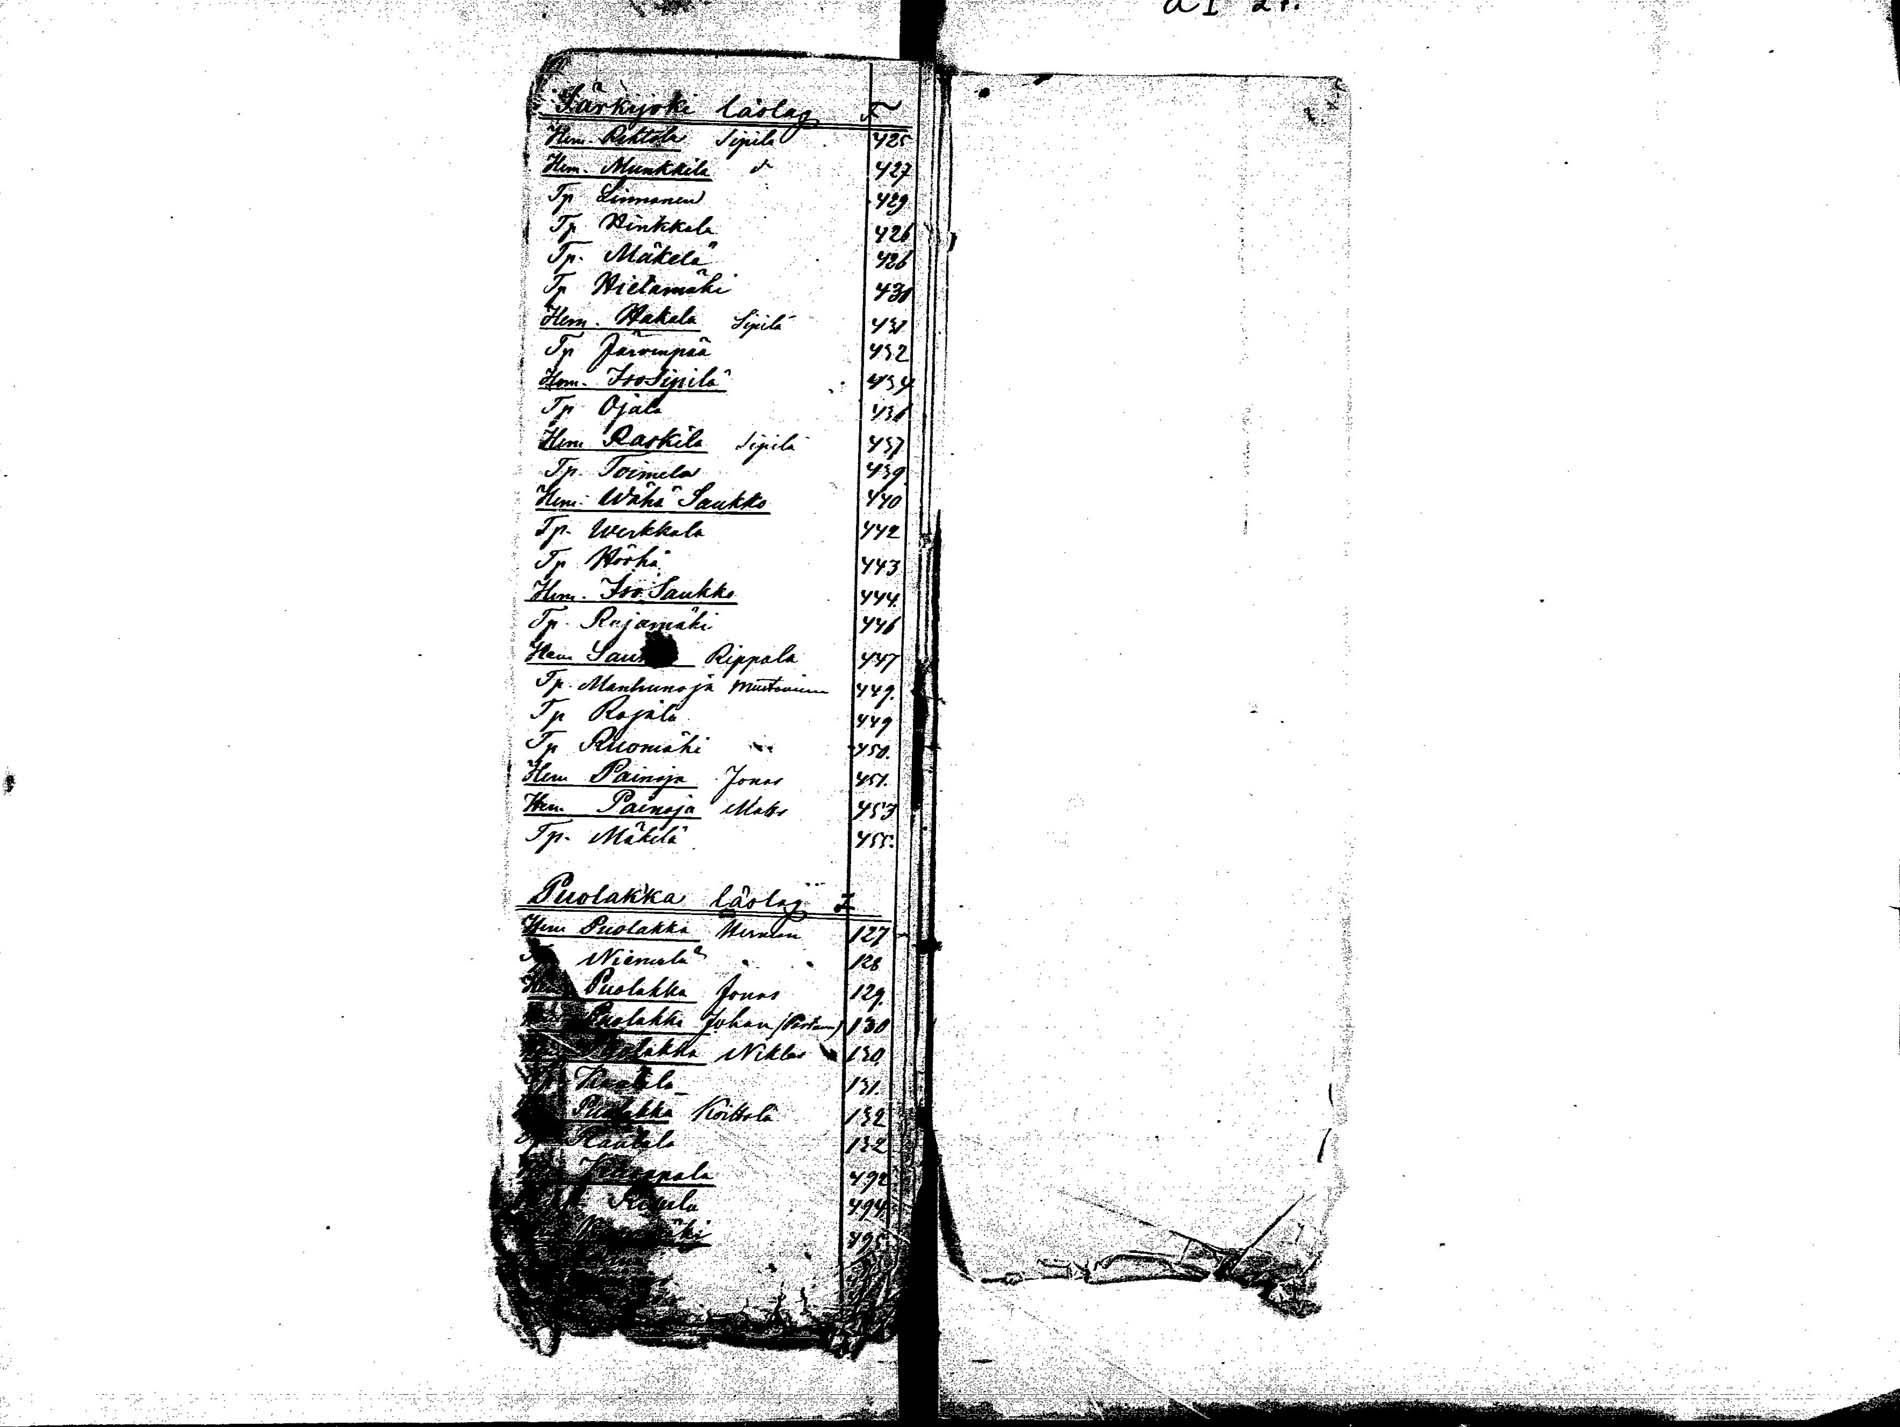 Särkijoki läslag F
Hem. Rihtola Sipilä 425
Hem. Munkkila d 427
Tp Linnanen 429
Tp Hinkkala 426
Tp. Mäkelä 426
Tp Hietamäki 430
Hem. Hakala Sipilä 431
Tp Järvenpää 432
Hem. Iso Sipilä 434
Tp Ojala 436
Hem Raskila Sipilä 437
Tp. Toimela 439
Hem. Wähä Saukko 440
Tp. Werkkala 442
Tp Höshä 443
Hem. Iso Saukko 444
Tp. Rajamäki 446
Hem Rippala 447
Tp. Manhunoja 449.
Tp Rajala 449
Tp Ruomäki 450.
Hem Painoja Jonas 451.
Hem Painoja Matts 453
Tp. Mäkilä 455.
Puolakka läslag I
Hem Puolakka Herman 127
Niemelä 128
Hem Puolakka Jonas 129.
Puolakka Johan 130
Puolakka Niklas 130
131.
Puolakka Koittola 132
Raukola 132
492
494
495.